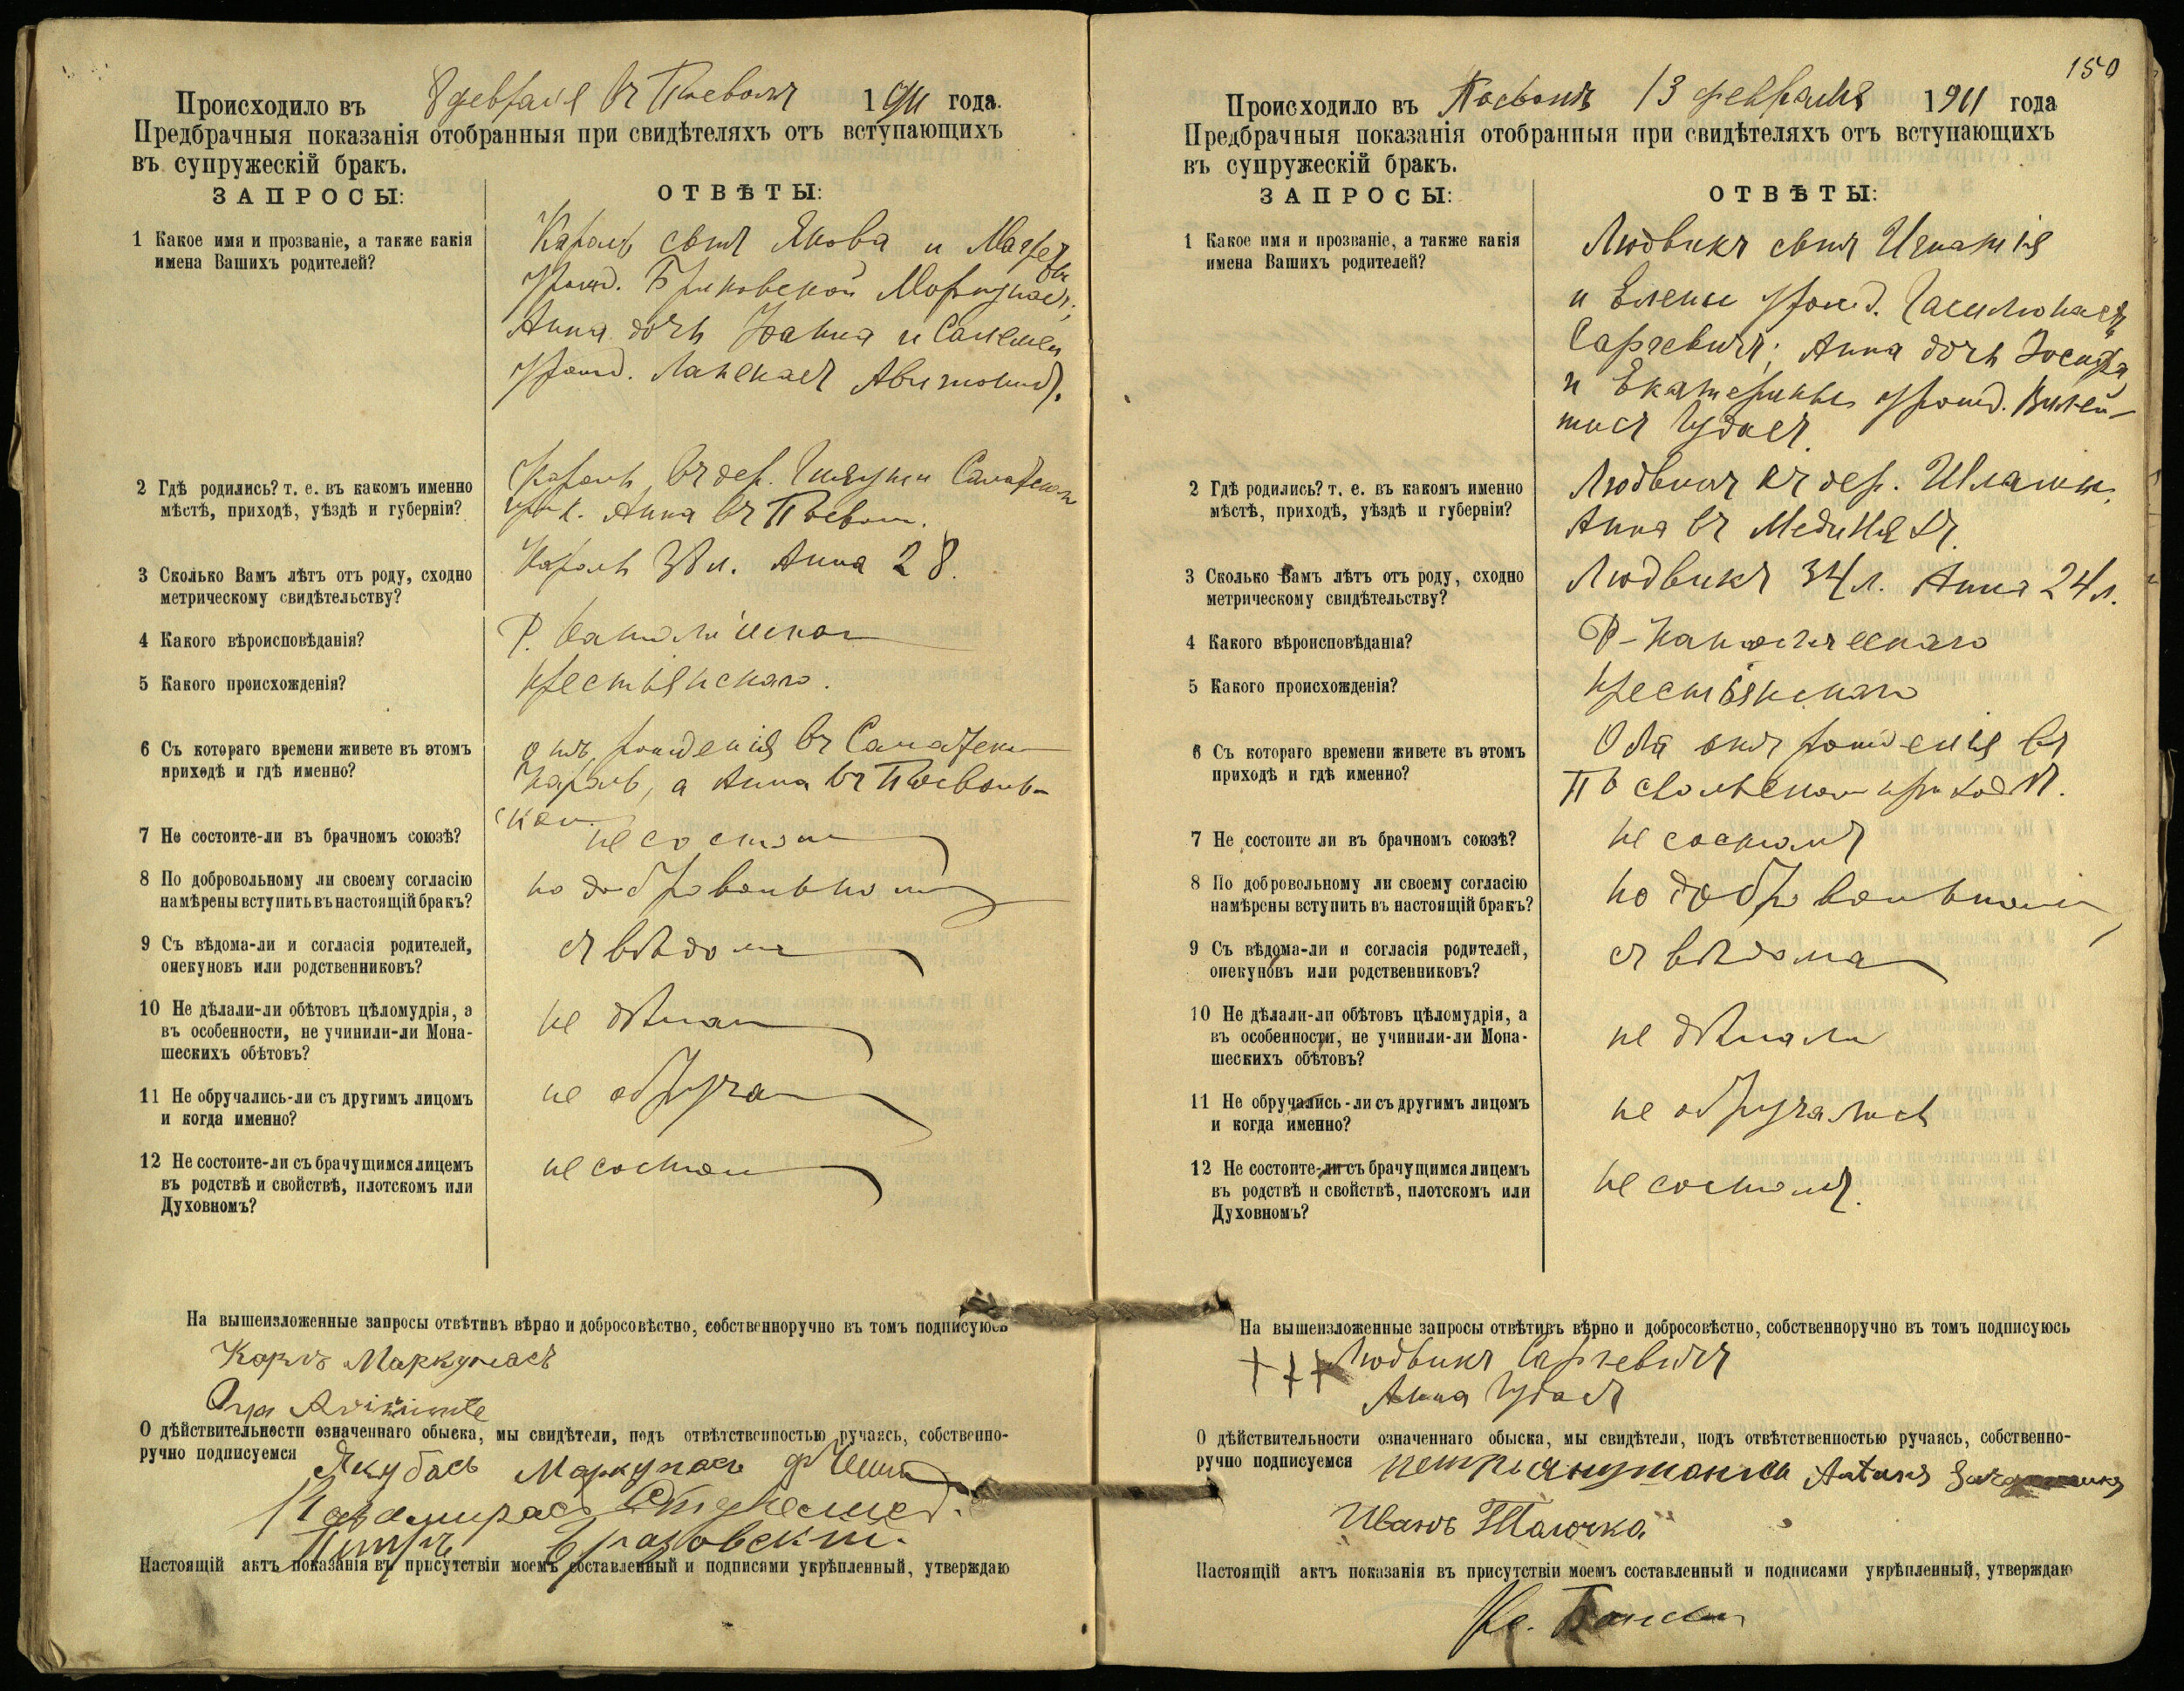 Происходило въ 8 февраля въ Посволѣ 1911 года.
Предбрачныя показанія отобранныя при свидѣтеляхъ отъ вступающихъ
въ супружескій бракъ.
ЗАПРОСЫ:
ОТВѢТЫ:
1 Какое имя и прозваніе, а также какія
имена Вашихъ родителей?
Кароль сынъ Якова и
урожд.
Анна дочь Іоанна и
урожд.
2 Гдѣ родились? т. е. въ какомъ именно
мѣстѣ, приходѣ, уѣздѣ и губерніи?
Кароль въ дер.
Анна въ Посвол.
3 Сколько Вамъ лѣтъ отъ роду, сходно
метрическому свидѣтельству?
Кароль 38 л. Анна 28.
4 Какого вѣроисповѣданія?
Р. Католическаго
5 Какого происхожденія?
крестьянскаго.
6 Съ котораго времени живете въ этомъ
приходѣ и гдѣ именно?
отъ рожденія въ
Кароль, а Анна въ Посволь-
ском.
7 Не состоите-ли въ брачномъ союзѣ?
не состоим
8 По добровольному ли своему согласію
намѣрены вступить въ настоящій бракъ?
по добровольному
9 Съ вѣдома-ли и согласія родителей,
опекуновъ или родственниковъ?
съ вѣдома
10 Не дѣлали-ли обѣтовъ цѣломудрія, а
въ особенности, не учинили-ли Мона-
шескихъ обѣтовъ?
не дѣлал
11 Не обручались-ли съ другимъ лицомъ
и когда именно?
не обруча
12 Не состоите-ли съ брачущимся лицемъ
въ родствѣ и свойствѣ, плотскомъ или
Духовномъ?
не состоим
На вышеизложенные запросы отвѣтивъ вѣрно и добросовѣстно, собственноручно въ томъ подписуюсь
Карлъ Маркунасъ
О дѣйствительности означеннаго обыска, мы свидѣтели, подъ отвѣтственностью ручаясь, собственно-
ручно подписуемся Якубасъ Маркунасъ
Настоящій актъ показанія въ присутствіи моемъ составленный и подписями укрѣпленный, утверждаю
150
Происходило въ Посволѣ 13 февраля 1911 года
Предбрачныя показанія отобранныя при свидѣтеляхъ отъ вступающихъ
въ супружескій бракъ.
ЗАПРОСЫ:
ОТВѢТЫ:
1 Какое имя и прозваніе, а также какія
имена Вашихъ родителей?
Людвикъ сынъ Игнатія
и Елены урожд.
Анна дочь Іосифа
и Екатерины урожд.
2 Гдѣ родились? т. е. въ какомъ именно
мѣстѣ, приходѣ, уѣздѣ и губерніи?
Людвикъ въ дер.
Анна въ
3 Сколько Вамъ лѣтъ отъ роду, сходно
метрическому свидѣтельству?
Людвикъ 34 л. Анна 24 л.
4 Какого вѣроисповѣданія?
Р-Католическаго
5 Какого происхожденія?
крестьянскаго
6 Съ котораго времени живете въ этомъ
приходѣ и гдѣ именно?
Оба отъ рожденія въ
Посвольском приходѣ.
7 Не состоите ли въ брачномъ союзѣ?
не состоимъ
8 По добровольному ли своему согласію
намѣрены вступить въ настоящій бракъ?
по добровольному
9 Съ вѣдома-ли и согласія родителей,
опекуновъ или родственниковъ?
съ вѣдома
10 Не дѣлали-ли обѣтовъ цѣломудрія, а
въ особенности, не учинили-ли Мона-
шескихъ обѣтовъ?
не дѣлали
11 Не обручались-ли съ другимъ лицомъ
и когда именно?
не обручались
12 Не состоите-ли съ брачущимся лицемъ
въ родствѣ и свойствѣ, плотскомъ или
Духовномъ?
не состоимъ.
На вышеизложенные запросы отвѣтивъ вѣрно и добросовѣстно, собственноручно въ томъ подписуюсь
+++ Людвикъ
Анна
О дѣйствительности означеннаго обыска, мы свидѣтели, подъ отвѣтственностью ручаясь, собственно-
ручно подписуемся
Иванъ
Настоящій актъ показанія въ присутствіи моемъ составленный и подписями укрѣпленный, утверждаю